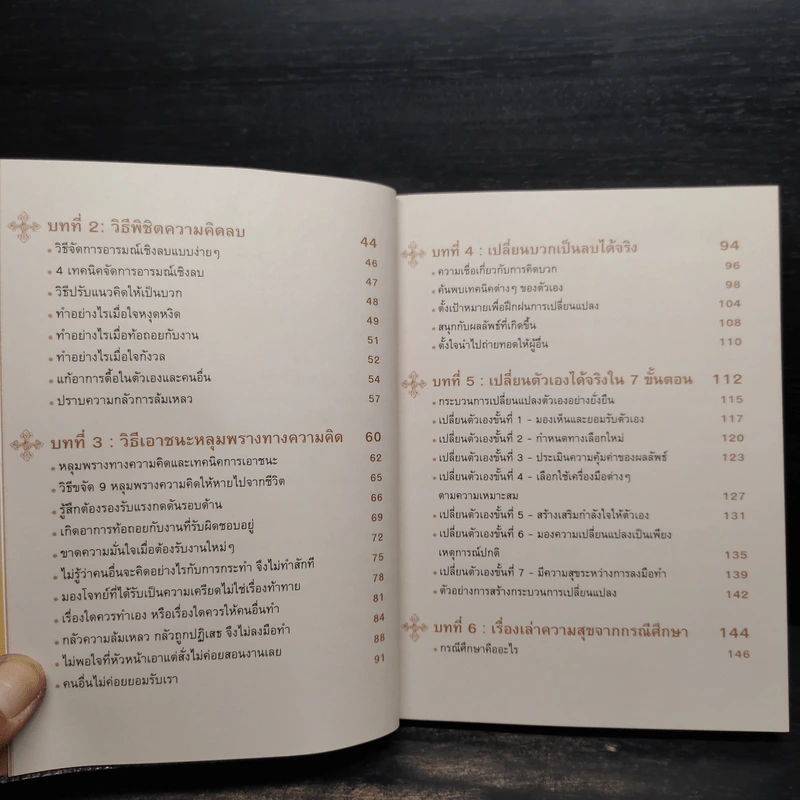 บทที่ 2: วิธีพิชิตความคิดลบ 44
• วิธีจัดการอารมณ์เชิงลบแบบง่ายๆ 46
• 4 เทคนิคจัดการอารมณ์เชิงลบ 47
• วิธีปรับแนวคิดให้เป็นบวก 48
• ทำอย่างไรเมื่อใจหงุดหงิด 49
• ทำอย่างไรเมื่อท้อถอยกับงาน 51
• ทำอย่างไรเมื่อใจกังวล 52
• แก้อาการดื้อในตัวเองและคนอื่น 54
• ปราบความกลัวการล้มเหลว 57
บทที่ 3 : วิธีเอาชนะหลุมพรางทางความคิด 60
• หลุมพรางทางความคิดและเทคนิคการเอาชนะ 62
• วิธีขจัด 9 หลุมพรางความคิดให้หายไปจากชีวิต 65
• รู้สึกต้องรองรับแรงกดดันรอบด้าน 66
• เกิดอาการท้อถอยกับงานที่รับผิดชอบอยู่ 69
• ขาดความมั่นใจเมื่อต้องรับงานใหม่ๆ 72
• ไม่รู้ว่าคนอื่นจะคิดอย่างไรกับการกระทำ จึงไม่ทำสักที 75
• มองโจทย์ที่ได้รับเป็นความเครียดไม่ใช่เรื่องท้าทาย 78
• เรื่องใดควรทำเอง หรือเรื่องใดควรให้คนอื่นทำ 81
• กลัวความล้มเหลว กลัวถูกปฏิเสธ จึงไม่ลงมือทำ 84
• ไม่พอใจที่หัวหน้าเอาแต่สั่งไม่ค่อยสอนงานเลย 88
• คนอื่นไม่ค่อยยอมรับเรา 91
บทที่ 4 : เปลี่ยนบวกเป็นลบได้จริง 94
• ความเชื่อเกี่ยวกับการคิดบวก 96
• ค้นพบเทคนิคต่างๆ ของตัวเอง 98
• ตั้งเป้าหมายเพื่อฝึกฝนการเปลี่ยนแปลง 104
• สนุกกับผลลัพธ์ที่เกิดขึ้น 108
• ตั้งใจนำไปถ่ายทอดให้ผู้อื่น 110
บทที่ 5 : เปลี่ยนตัวเองได้จริงใน 7 ขั้นตอน 112
• กระบวนการเปลี่ยนแปลงตัวเองอย่างยั่งยืน 115
• เปลี่ยนตัวเองขั้นที่ 1 - มองเห็นและยอมรับตัวเอง 117
• เปลี่ยนตัวเองขั้นที่ 2 - กำหนดทางเลือกใหม่ 120
• เปลี่ยนตัวเองขั้นที่ 3 - ประเมินความคุ้มค่าของผลลัพธ์ 123
• เปลี่ยนตัวเองขั้นที่ 4 - เลือกใช้เครื่องมือต่างๆ
ตามความเหมาะสม 127
• เปลี่ยนตัวเองขั้นที่ 5 - สร้างเสริมกำลังใจให้ตัวเอง 131
• เปลี่ยนตัวเองขั้นที่ 6 - มองความเปลี่ยนแปลงเป็นเพียง
เหตุการณ์ปกติ 135
• เปลี่ยนตัวเองขั้นที่ 7 - มีความสุขระหว่างการลงมือทำ 139
• ตัวอย่างการสร้างกระบวนการเปลี่ยนแปลง 142
บทที่ 6 : เรื่องเล่าความสุขจากกรณีศึกษา 144
• กรณีศึกษาคืออะไร 146